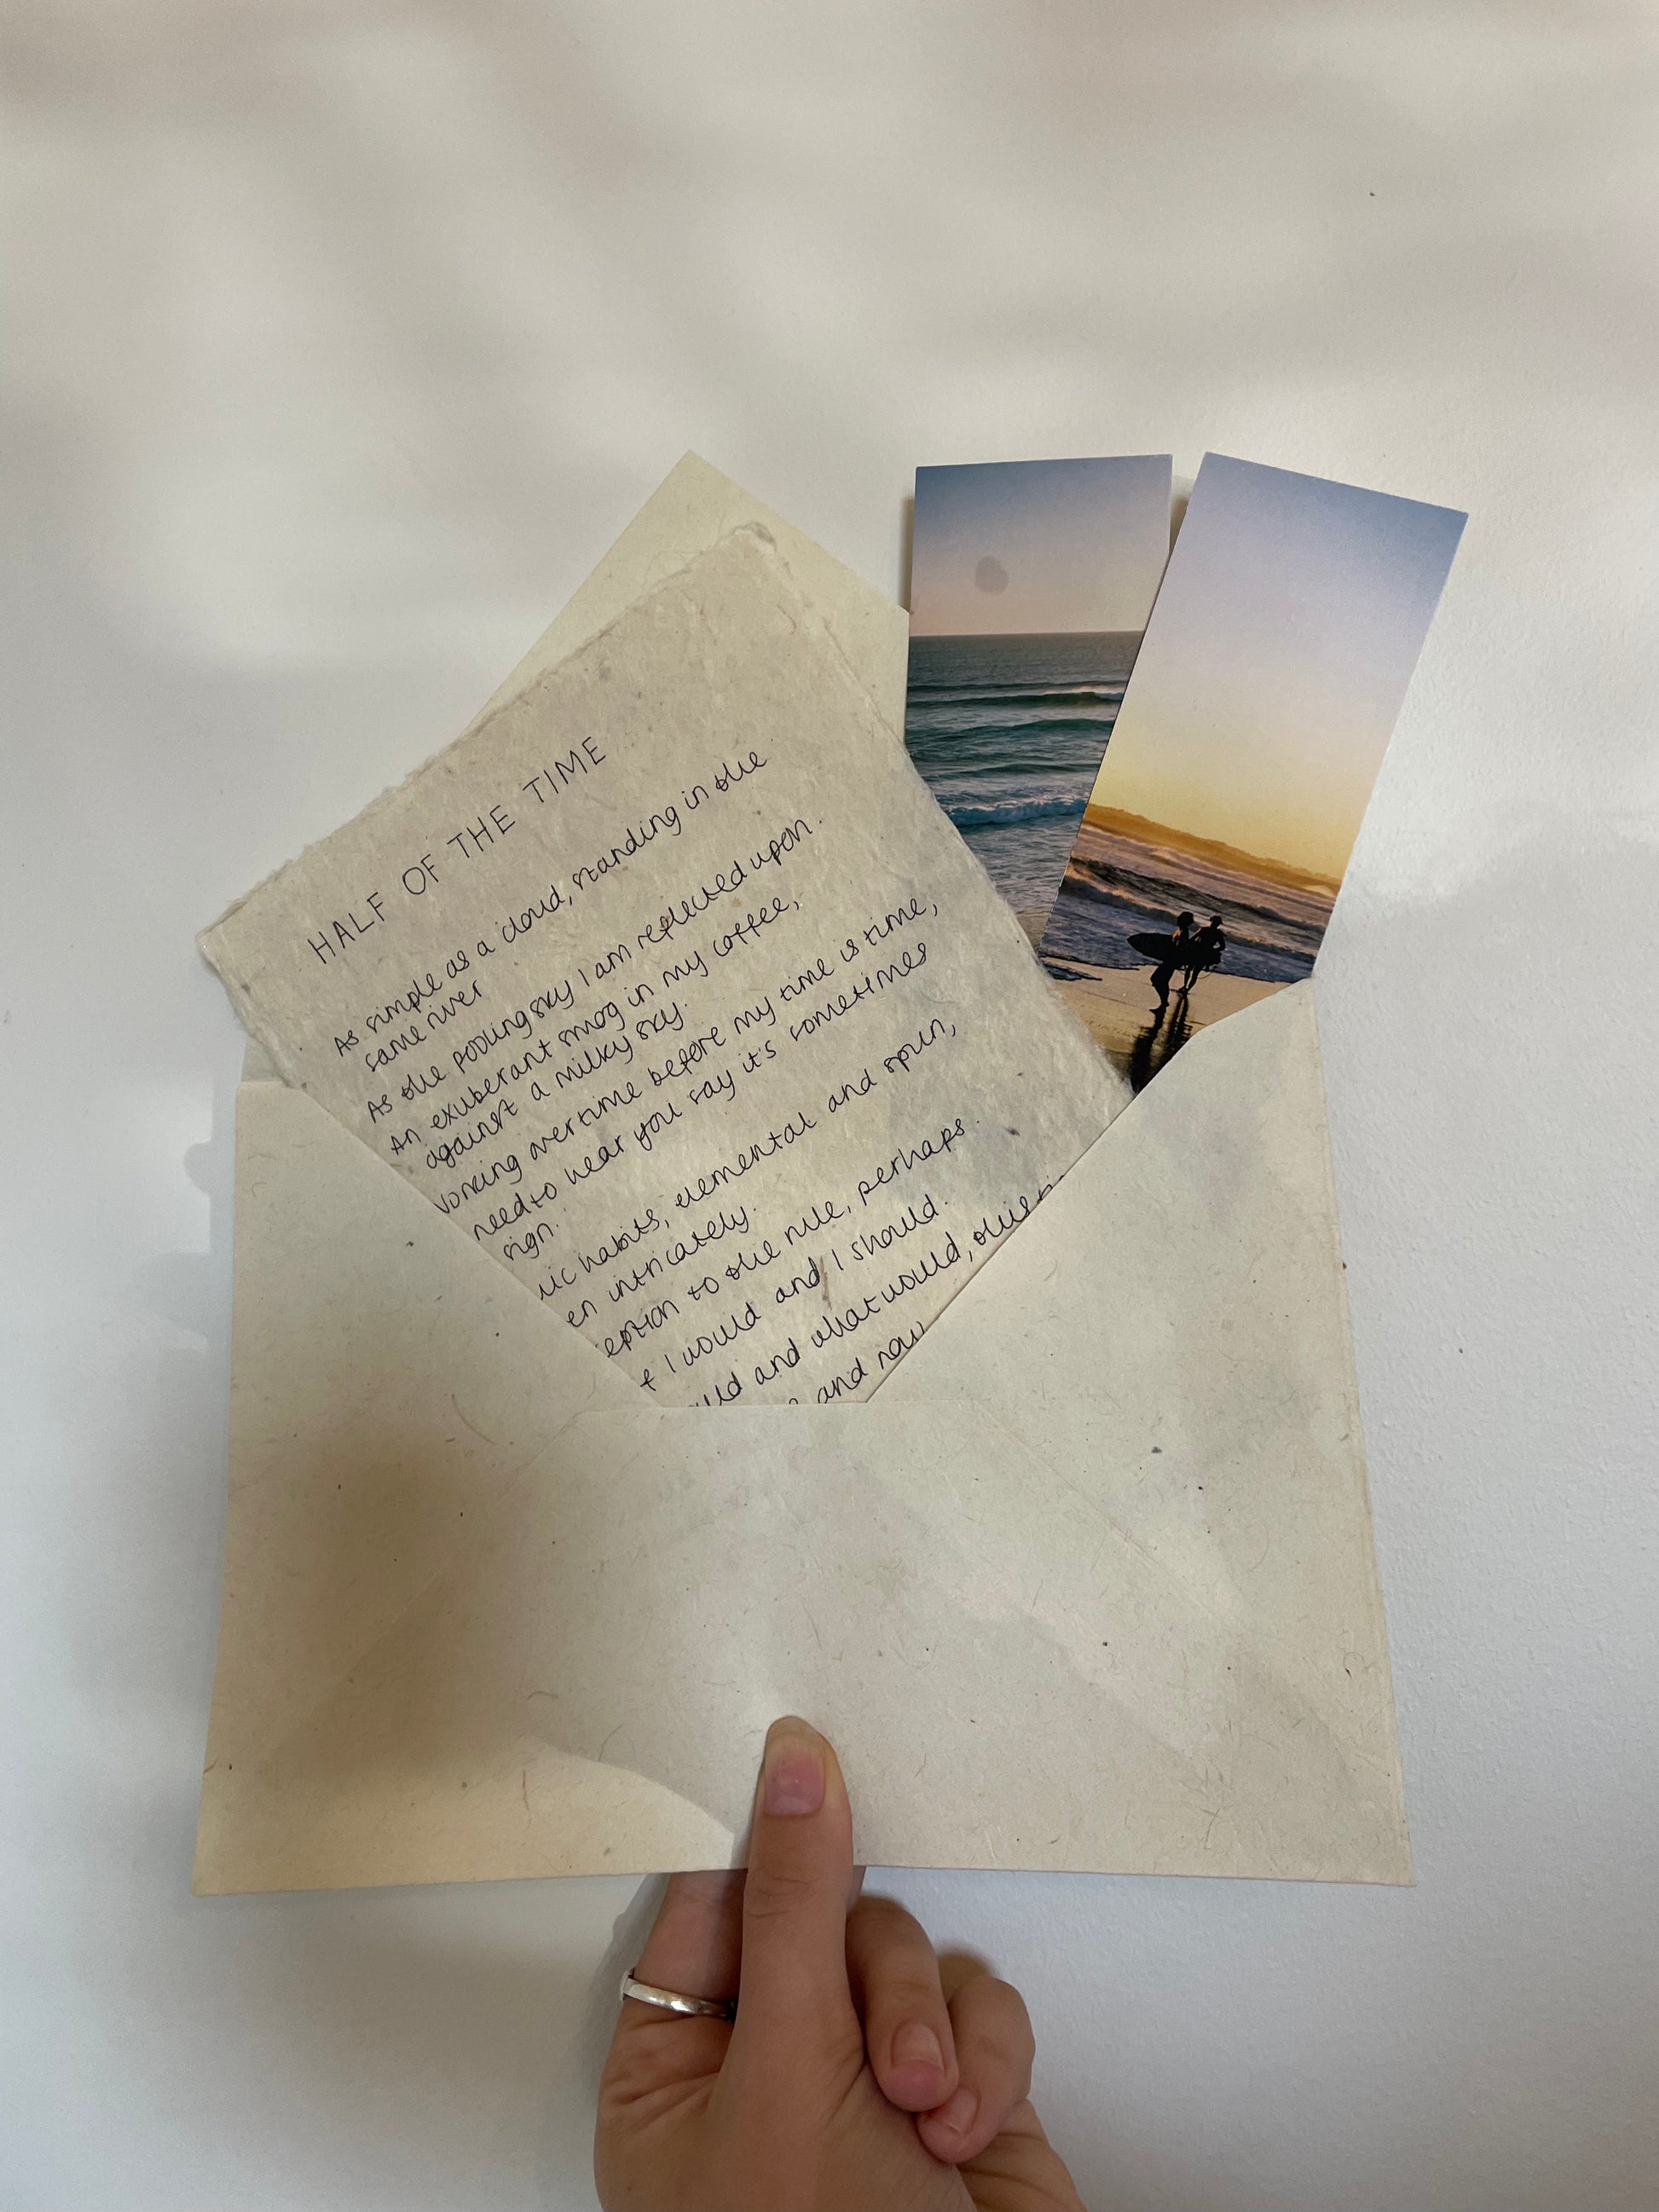 HALF OF THE TIME
As simple as a cloud, standing in the
same river
As the pooling sky I am reflected upon.
An exuberant smog in my coffee,
against a milky sky.
need to hear you say it's sometimes
sign.
habits, elemental and spun,
intricately.
to the rule, perhaps.
I would and I should.
and what would,
and now